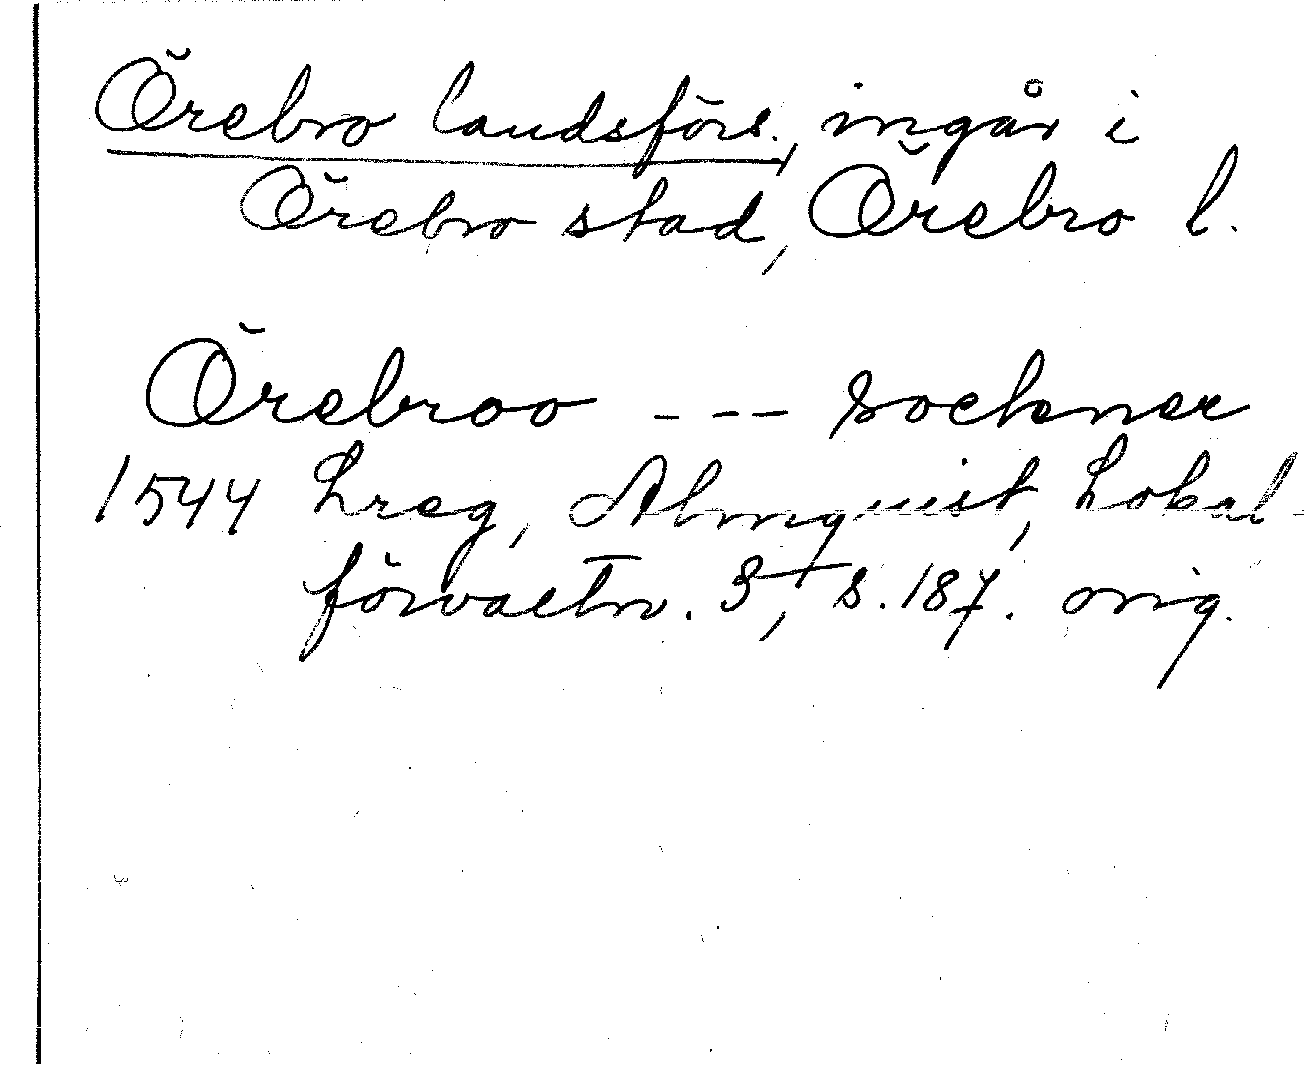 Örebro landsförs., ingår i
Örebro stad, Örebro l.
Örebroo - - - sockner
1544 Lreg, Almquist, Lokal-
förvaltn. 3, s. 187. orig.